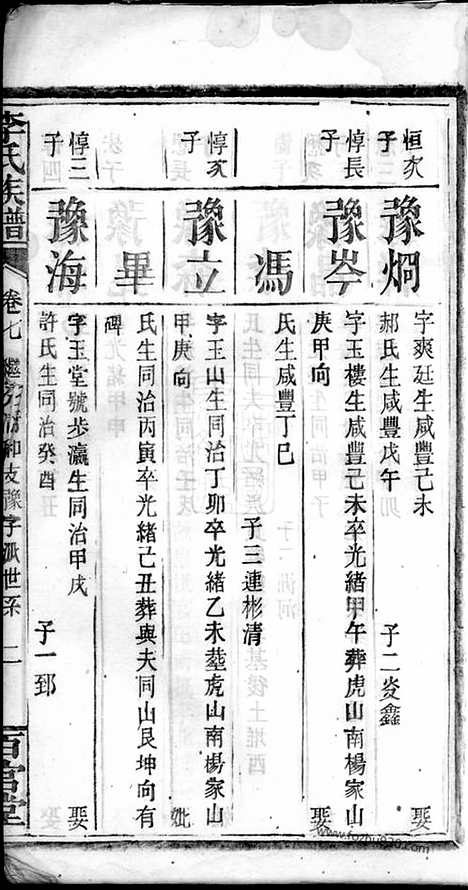 恒次子
豫烱
字爽廷生咸豐己未
娶
郝氏生咸豐戊午 子二炎鑫
惇長子
豫岑
字玉樓生咸豐己未卒光緒甲午葬虎山南楊家山
庚甲向
娶
馮
氏生咸豐丁巳 子三連彬清
惇次子
豫立
字玉山生同治丁卯卒光緒乙未葬虎山南楊家山
甲庚向
妣
畢
氏生同治丙寅卒光緒己丑葬與夫同山艮坤向有
碑
惇三子
豫海
字玉堂號步瀛生同治甲戌
娶
許氏生同治癸酉 子一郅
李氏族譜
卷七
豫字派世系
二
百官堂
www.fozhu920.com